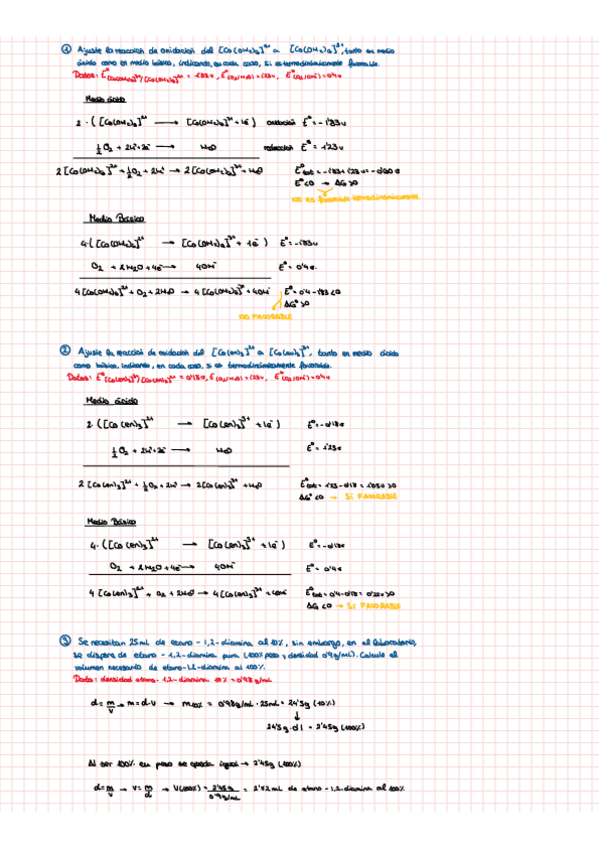 ① Ajuste la reacción de oxidación del [Co(OH₂)₆]²⁺ a [Co(OH₂)₆]³⁺, tanto en medio
ácido como en medio básico, indicando, en cada caso, si es termodinámicamente favorable.
Datos: E°[Co(OH₂)₆]³⁺/[Co(OH₂)₆]²⁺ = 1'83v, E°(O₂/H₂O)=1'23v, E°(O₂/OH⁻)=0'4v
Medio ácido
2·([Co(OH₂)₆]²⁺ → [Co(OH₂)₆]³⁺+1e⁻) oxidación E°=-1'83v
½O₂+2H⁺+2e⁻ → H₂O reducción E°=1'23v
2[Co(OH₂)₆]²⁺+½O₂+2H⁺ → 2[Co(OH₂)₆]³⁺+H₂O E°tot=-1'83+1'23v=-0'60v
E°<0 → ΔG>0
no es favorable termodinámicamente
Medio Básico
4·([Co(OH₂)₆]²⁺ → [Co(OH₂)₆]³⁺+1e⁻) E°=-1'83v
O₂+2H₂O+4e⁻ → 4OH⁻ E°=0'4v
4[Co(OH₂)₆]²⁺+O₂+2H₂O → 4[Co(OH₂)₆]³⁺+4OH⁻ E°=0'4-1'83<0
ΔG°>0
NO FAVORABLE
② Ajuste la reacción de oxidación del [Co(en)₃]²⁺ a [Co(en)₃]³⁺, tanto en medio ácido
como básico, indicando, en cada caso, si es termodinámicamente favorable.
Datos: E°[Co(en)₃]³⁺/[Co(en)₃]²⁺=0'18v, E°(O₂/H₂O)=1'23v, E°(O₂/OH⁻)=0'4v
Medio ácido
2·([Co(en)₃]²⁺ → [Co(en)₃]³⁺+1e⁻) E°=-0'18v
½O₂+2H⁺+2e⁻ → H₂O E°=1'23v
2[Co(en)₃]²⁺+½O₂+2H⁺ → 2[Co(en)₃]³⁺+H₂O E°tot=1'23-0'18=1'05v>0
ΔG°<0 → SI FAVORABLE
Medio Básico
4·([Co(en)₃]²⁺ → [Co(en)₃]³⁺+1e⁻) E°=-0'18v
O₂+2H₂O+4e⁻ → 4OH⁻ E°=0'4v
4[Co(en)₃]²⁺+O₂+2H₂O → 4[Co(en)₃]³⁺+4OH⁻ E°tot=0'4-0'18=0'22v>0
ΔG<0 → SI FAVORABLE
③ Se necesitan 25mL de etano-1,2-diamina al 10%, sin embargo, en el laboratorio,
se dispone de etano-1,2-diamina pura (100% peso y densidad 0'9g/mL). Calcule el
volumen necesario de etano-1,2-diamina al 100%.
Dato: densidad etano-1,2-diamina 10%=0'98g/mL
d=m/v → m=d·v → m10%=0'98g/mL·25mL=24'5g (10%)
↓
24'5g·0'1=2'45g (100%)
Al ser 100% en peso se queda igual → 2'45g (100%)
d=m/v → v=m/d → V(100%)=2'45g/0'9g/mL=2'72mL de etano-1,2-diamina al 100%